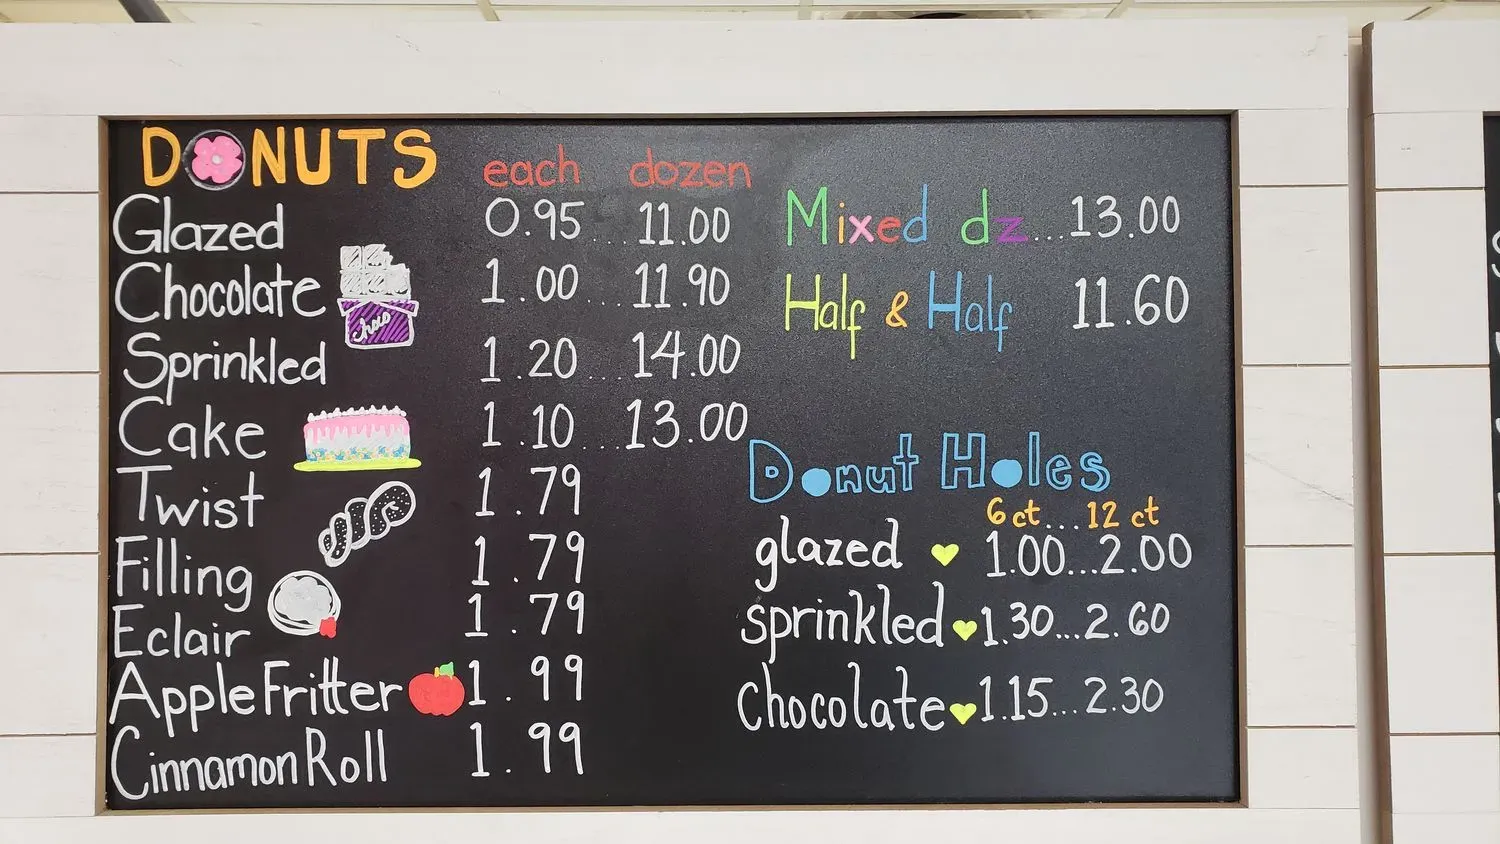 DONUTS
each dozen
Glazed 0.95....11.00
Chocolate 1.00....11.90
choco
Sprinkled 1.20....14.00
Cake 1.10....13.00
Twist 1.79
Filling 1.79
Eclair 1.79
Apple Fritter 1.99
Cinnamon Roll 1.99
Mixed dz...13.00
Half & Half 11.60
Donut Holes
6 ct....12 ct
glazed 1.00...2.00
sprinkled 1.30...2.60
chocolate 1.15...2.30